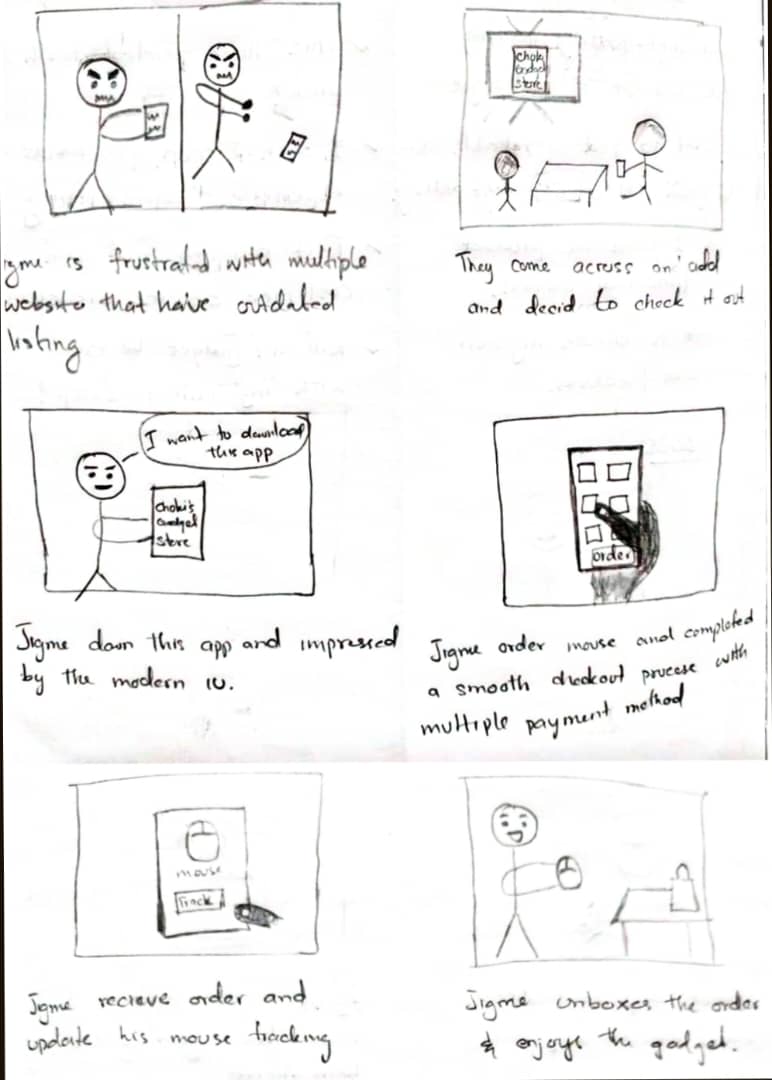 igme is frustrated with multiple
website that have outdated
listing
Choki
Gadget
store
They come across an add
and decid to check it out
I want to download
this app
Choki's
Gadget
Store
Jigme down this app and impressed
by the modern IU.
order
Jigme order mouse and completed
a smooth checkout procese with
multiple payment method
mouse
Track
Jigme recieve order and
update his mouse tracking
Jigme unboxes the order
& enjoys the gadget.